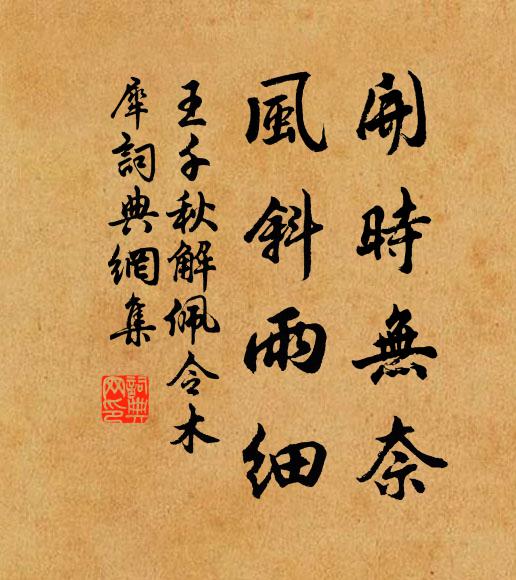 開時無奈
風斜雨細
王千秋解佩令木
犀詞典網集
詞典
网印